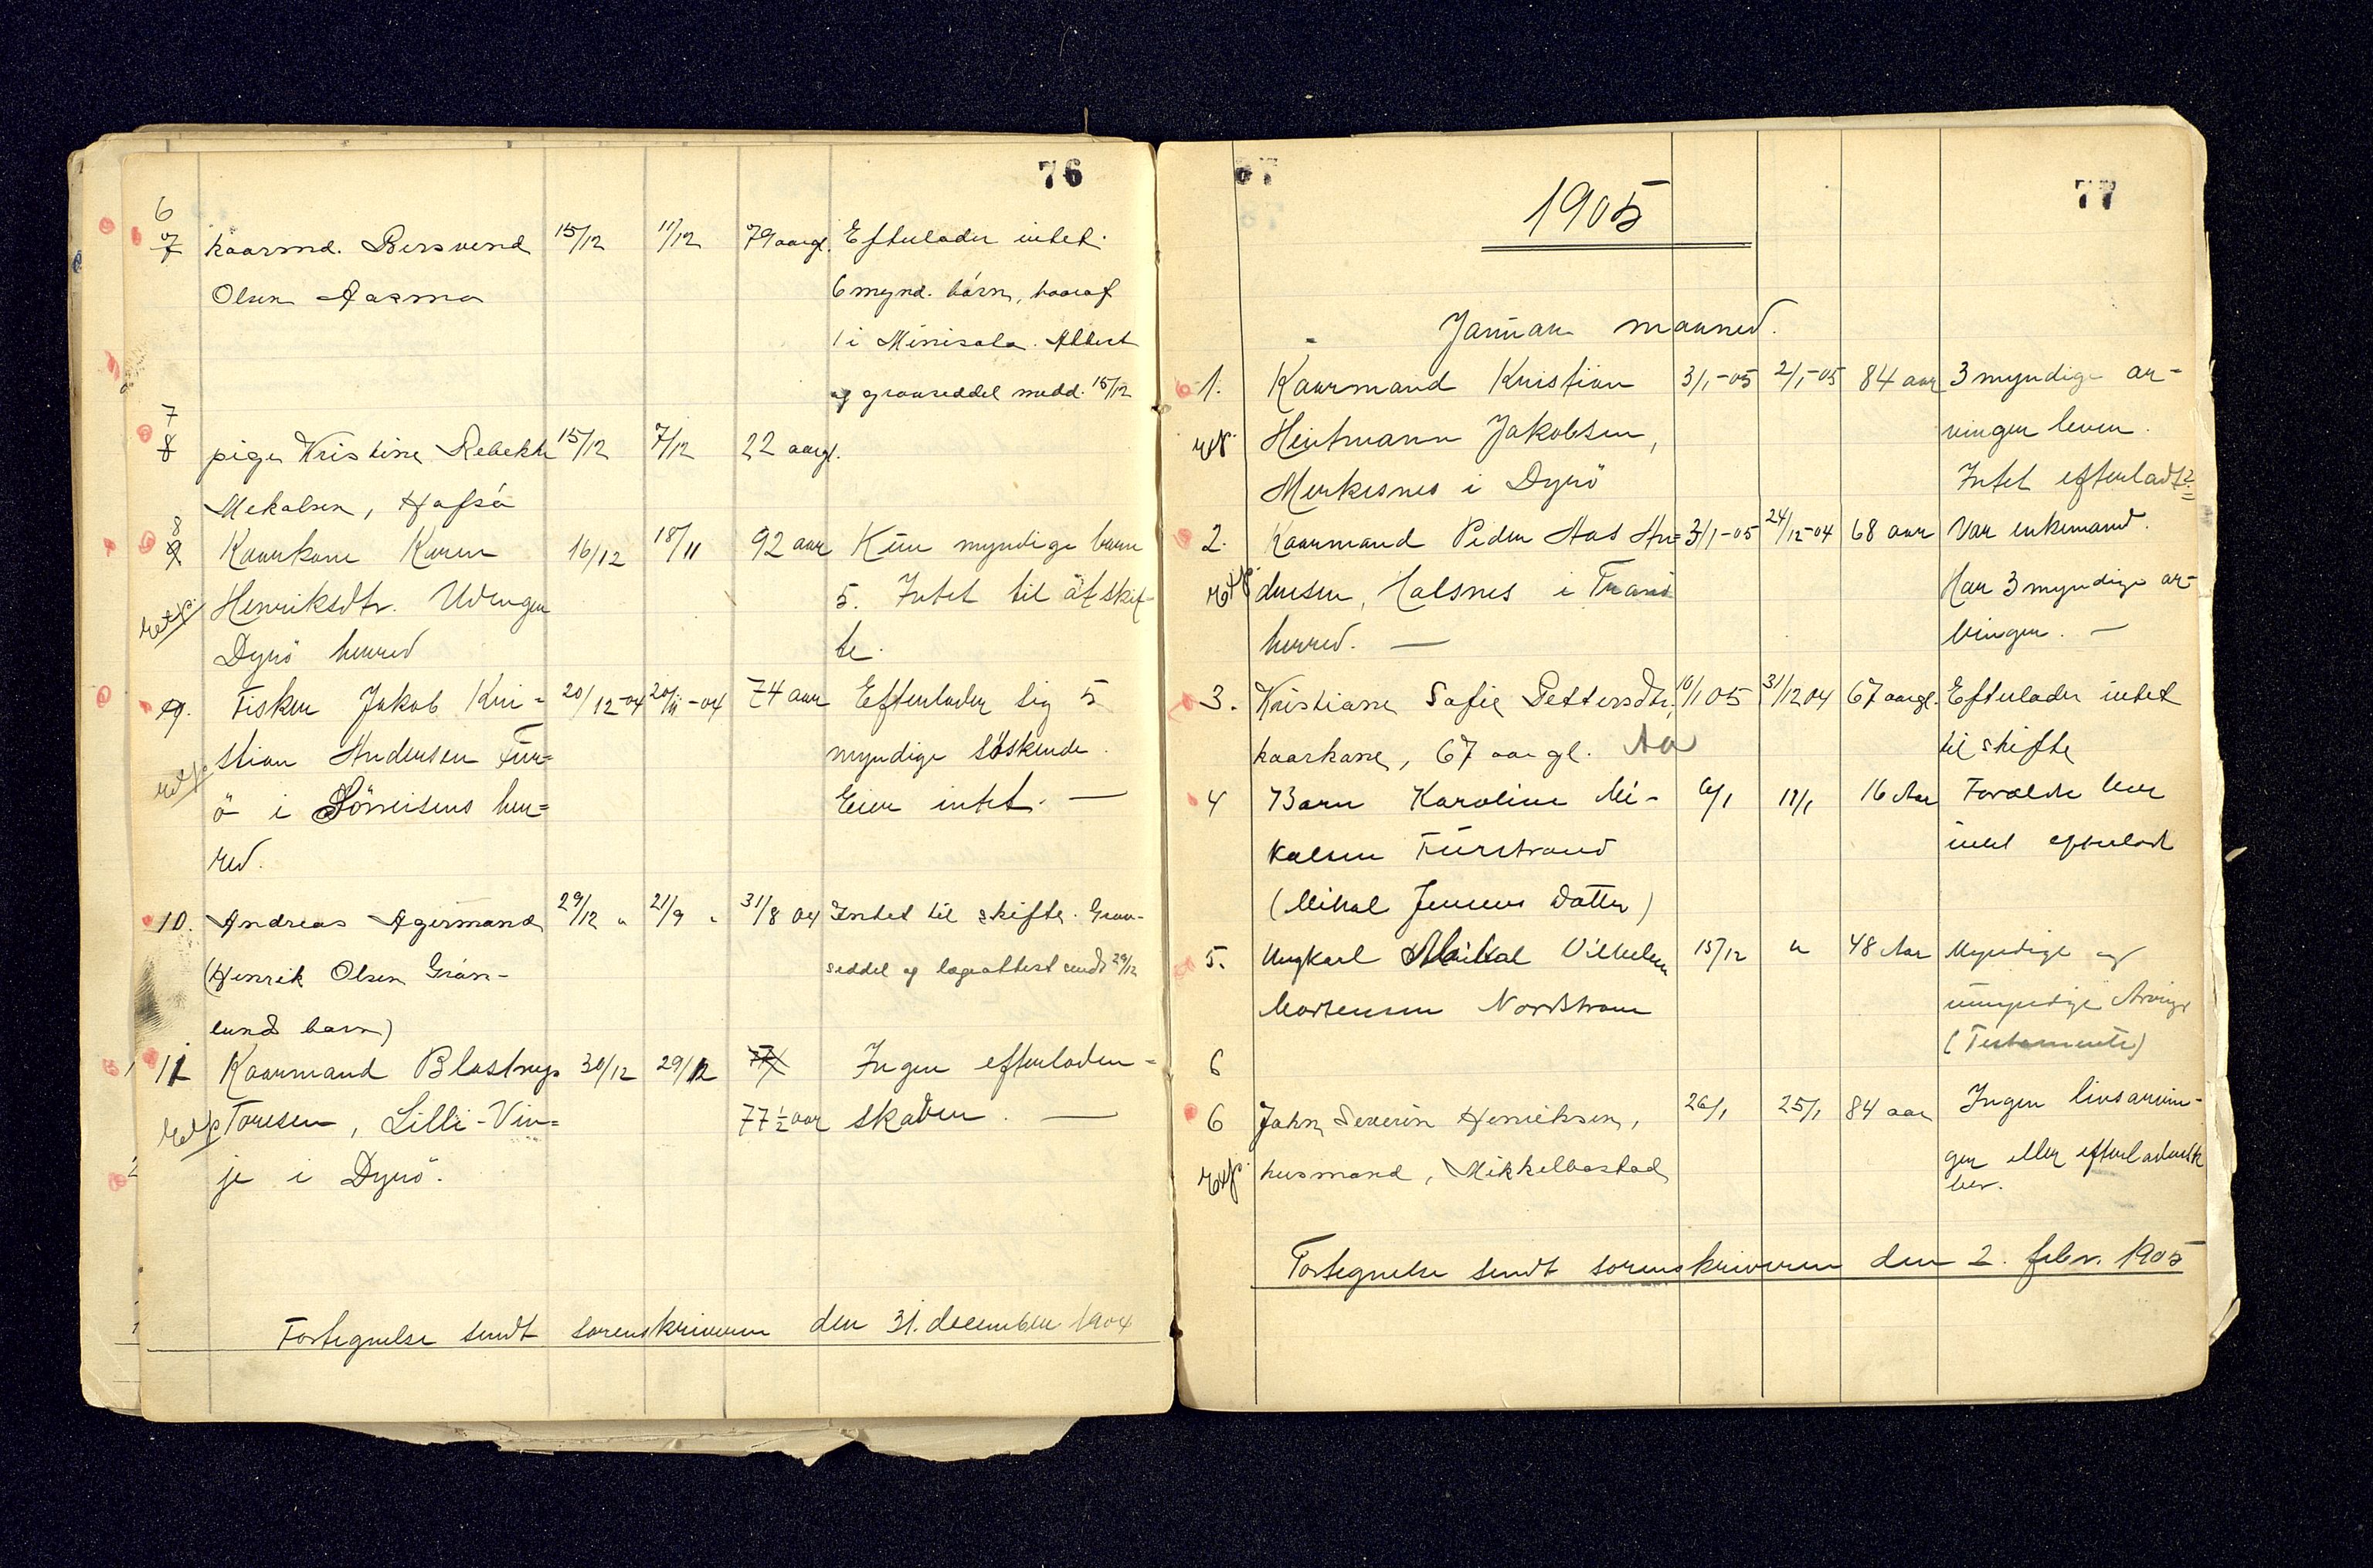 76
6
7 kaarmd. Bersvend 15/12 11/12 79 aargl. Efterlader intet.
Olsen Aasmo 6 mynd. børn, hvoraf
1 i Minisota. Attest
og gravseddel medd. 15/12
7
8 pige Kristine Rebekka 15/12 7/12 22 aargl.
Mekalsen, Hafså
8
9 Kaarkone Karen 16/12 18/11 92 aar Kun myndige barn
Henriksdtr. 5. Intet til at skif-
Dyrö herred te.
9. Fisker Jakob Kri- 20/12-04 20/11-04 74 aar Efterlader sig 5
stian Andersen Fur= myndige söskende.
ö i Sörreisens her= Eier intet. —
red.
10. Andreas Agermand 29/12 " 21/9 " 31/8 04 Intet til skifte. Grav-
(Henrik Olsen Grøn- seddel og lægeattest sendt 29/12
lunds barn)
11 Kaarmand Blastrup 30/12 29/12 77 Ingen efterladen-
Toresen, Lilli-Vin= 77 1/2 aar skaber. —
je i Dyrö.
Fortegnelse sendt sorenskriveren den 31. december 1904
77
1905
Januar maaned.
1. Kaarmand Kristian 3/1-05 2/1-05 84 aar 3 myndige ar-
Heitmann Jakobsen, vinger lever.
Merkesnes i Dyrö Intet efterladt?
2. Kaarmand Peder Aas An= 3/1-05 24/12-04 68 aar Var enkemand.
dersen, Kalsnes i Tranö Har 3 myndige ar-
herred. — vinger. —
3. Kristiane Sofie Pettersdtr, 10/1 05 31/12 04 67 aargl. Efterlader intet
kaarkone, 67 aar gl. Aa til skifte
4 Barn Karoline Mi- 6/1 16 Aar Forældre lever
kalsen Furstrand intet efterladt
(Mikal Jensens datter)
5. Ungkarl Mikal Vilhelm 15/12 " 48 Aar Myndige og
Mortensen Nordstrom umyndige Arvinger
(Testamente)
6
6 John Severin Henriksen, 26/1 25/1 84 aar Ingen livsarvin-
Exp. husmand, Mikkelbostad ger eller efterladenska
ber.
Fortegnelse sendt sorenskriveren den 2. febr. 1905